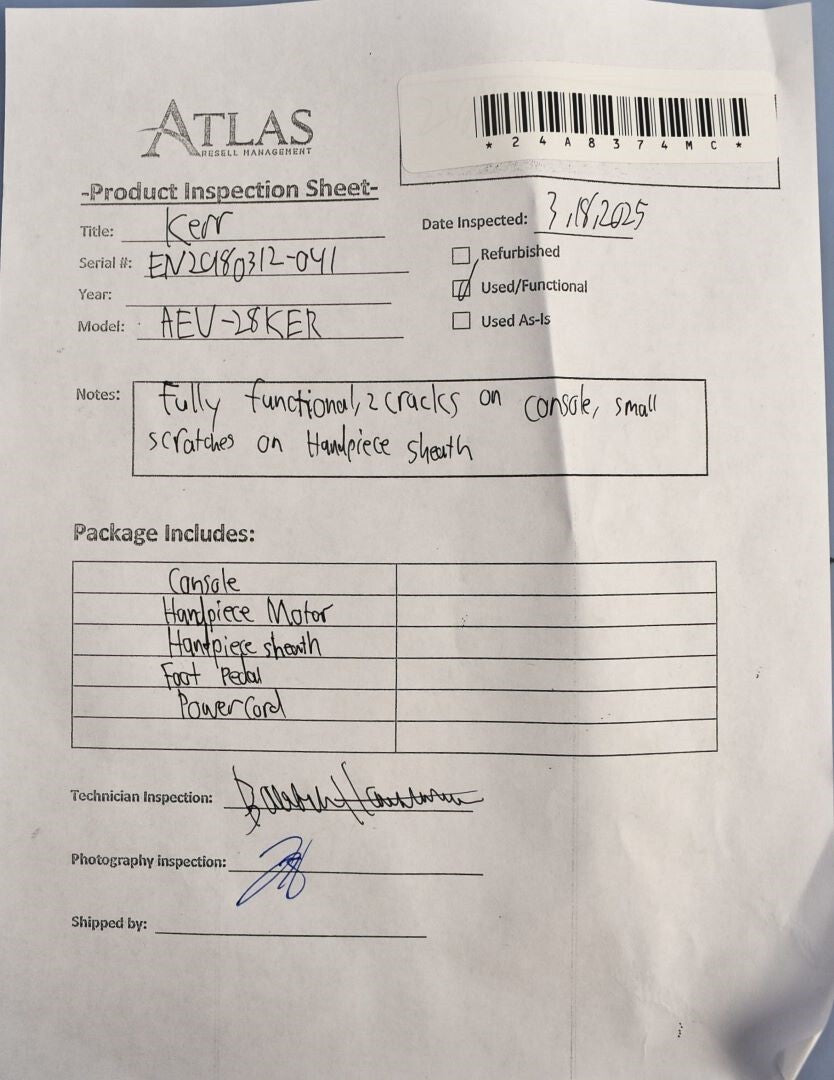 ATLAS
RESELL MANAGEMENT
*24A8374MC*
-Product Inspection Sheet-
Title: Kerr
Date Inspected: 3,18,2025
Serial #: EN20180312-041
Refurbished
Year:
Used/Functional
Model: AEU-28KER
Used As-Is
Notes: Fully functional, 2 cracks on console, small
scratches on Handpiece sheath
Package Includes:
Console
Handpiece Motor
Handpiece sheath
Foot Pedal
Power Cord
Technician Inspection:
Photography inspection:
Shipped by: